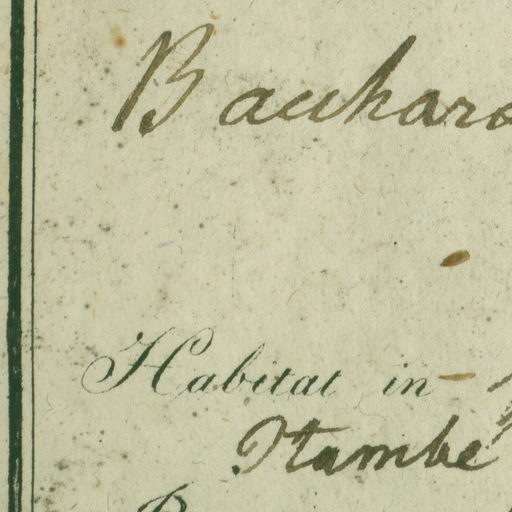 Bacchar
Habitat in
Itambe